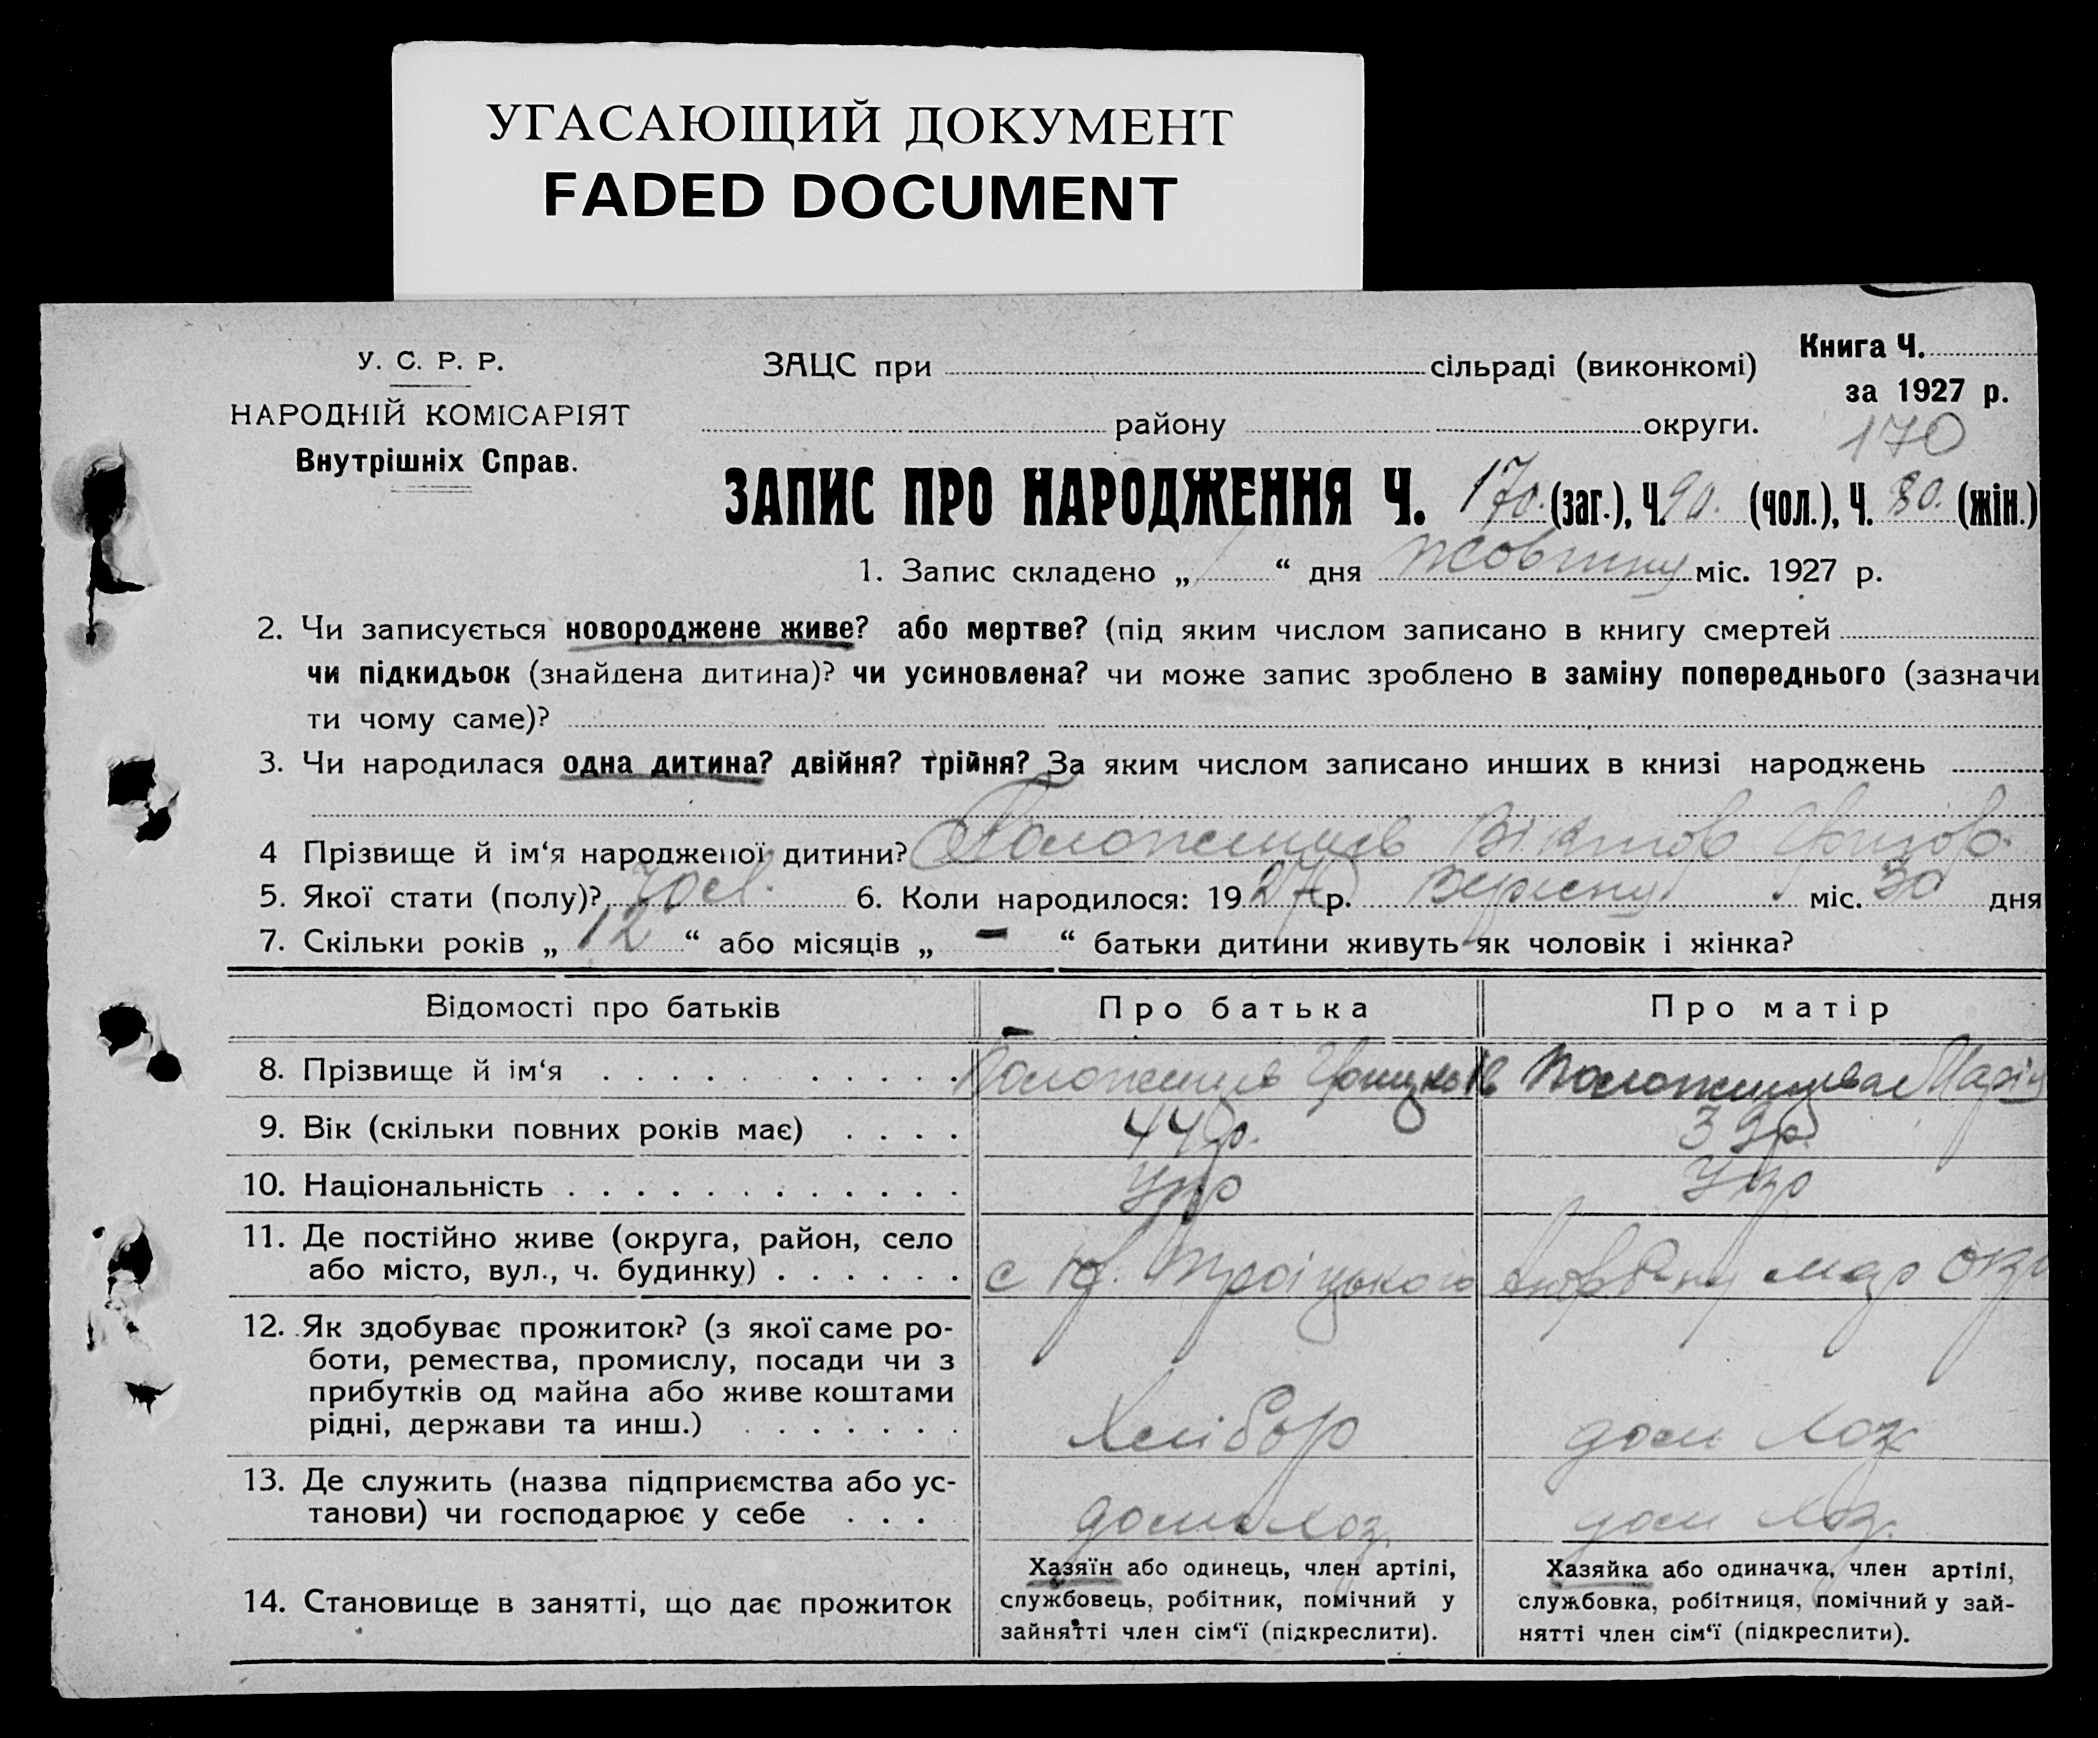 УГАСАЮЩИЙ ДОКУМЕНТ
FADED DOCUMENT
У. С. Р. Р.
НАРОДНІЙ КОМІСАРІЯТ
Внутрішніх Справ.
ЗАЦС при сільраді (виконкомі)
району округи.
Книга Ч.
за 1927 р.
170
ЗАПИС ПРО НАРОДЖЕННЯ Ч. 170. (заг.), Ч. 90. (чол.), Ч. 80. (жін.)
1. Запис складено „ “ дня жовтня міс. 1927 р.
2. Чи записується новороджене живе? або мертве? (під яким числом записано в книгу смертей
чи підкидьок (знайдена дитина)? чи усиновлена? чи може запис зроблено в заміну попереднього (зазначи
ти чому саме)?
3. Чи народилася одна дитина? двійня? трійня? За яким числом записано инших в книзі народжень
4 Прізвище й ім‘я народженої дитини? Віктор
5. Якої стати (полу)? чол. 6. Коли народилося: 1927 р. Вересня міс. 30 дня
7. Скільки років „ 12 “ або місяців „ - “ батьки дитини живуть як чоловік і жінка?
Відомості про батьків Про батька Про матір
8. Прізвище й ім‘я Марія
9. Вік (скільки повних років має) 44 р. 39 р.
10. Національність Укр Укр
11. Де постійно живе (округа, район, село
або місто, вул., ч. будинку) с Троіцького Мар окр
12. Як здобуває прожиток? (з якої саме ро-
боти, ремества, промислу, посади чи з
прибутків од майна або живе коштами
рідні, держави та инш.) Хлібор дом хоз
13. Де служить (назва підприємства або ус-
танови) чи господарює у себе дом хоз. дом хоз.
14. Становище в занятті, що дає прожиток
Хазяїн або одинець, член артілі,
службовець, робітник, помічний у
зайнятті член сім‘ї (підкреслити).
Хазяйка або одиначка, член артілі,
службовка, робітниця, помічний у зай-
нятті член сім‘ї (підкреслити).